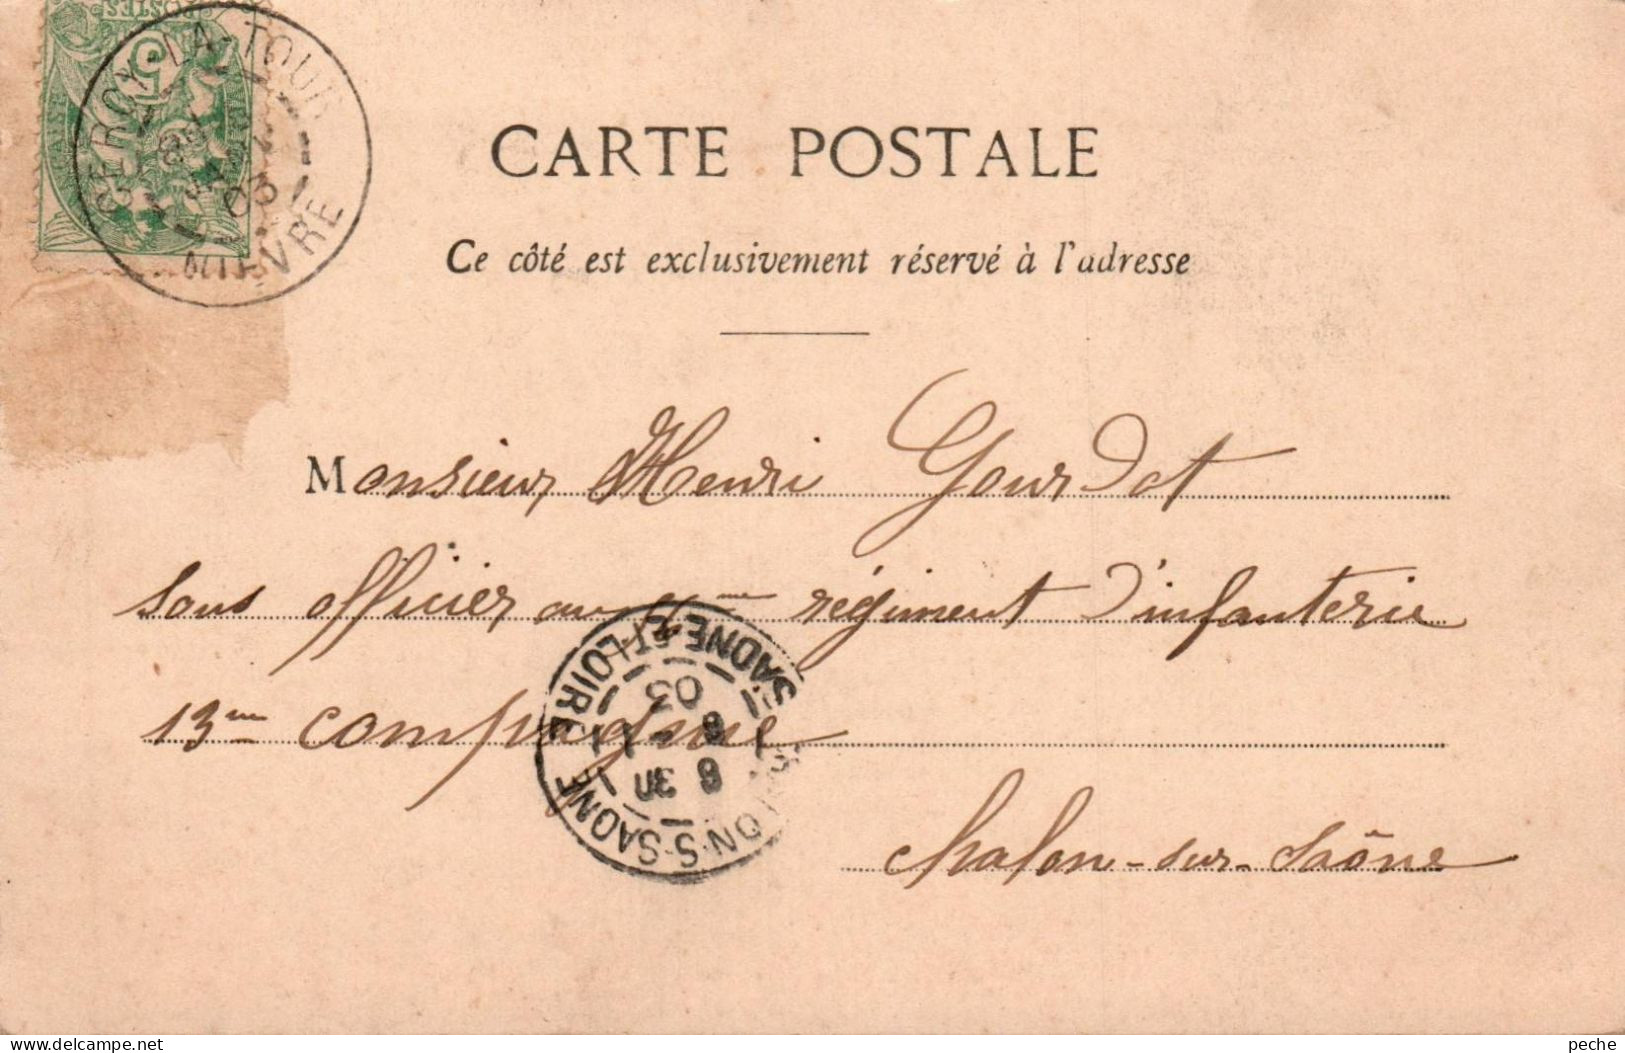 POSTES
5
CERCY-LA-TOUR
03
NIÈVRE
CARTE POSTALE
Ce côté est exclusivement réservé à l'adresse
Monsieur Henri Gourdot
sous officier au me régiment d'infanterie
13me compagnie
Chalon-sur-Saône
SAONE-ET-LOIRE
03
8 30
ON-S-SAONE
delcampe.net
peche